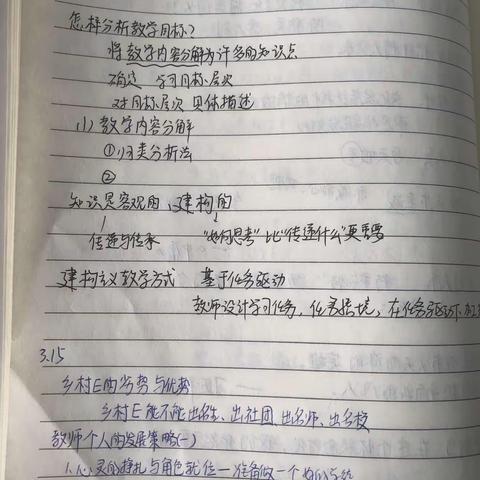 怎样分析教学目标?
将教学内容分解为许多的知识点
确定 学习目标层次
对目标层次 具体描述
(1) 教学内容分解
①归类分析法
②
知识是客观的、建构的
传递与传承 "如何思考"比"传递什么"更重要
建构主义教学方式 基于任务驱动
教师设计学习任务,任务环境,在任务驱动下
3.15
乡村E的劣势与优势
乡村E能不能出名生、出社团、出名师、出名校
教师个人的发展策略(一)
1.心灵的挣扎与角色就位—准备做一个